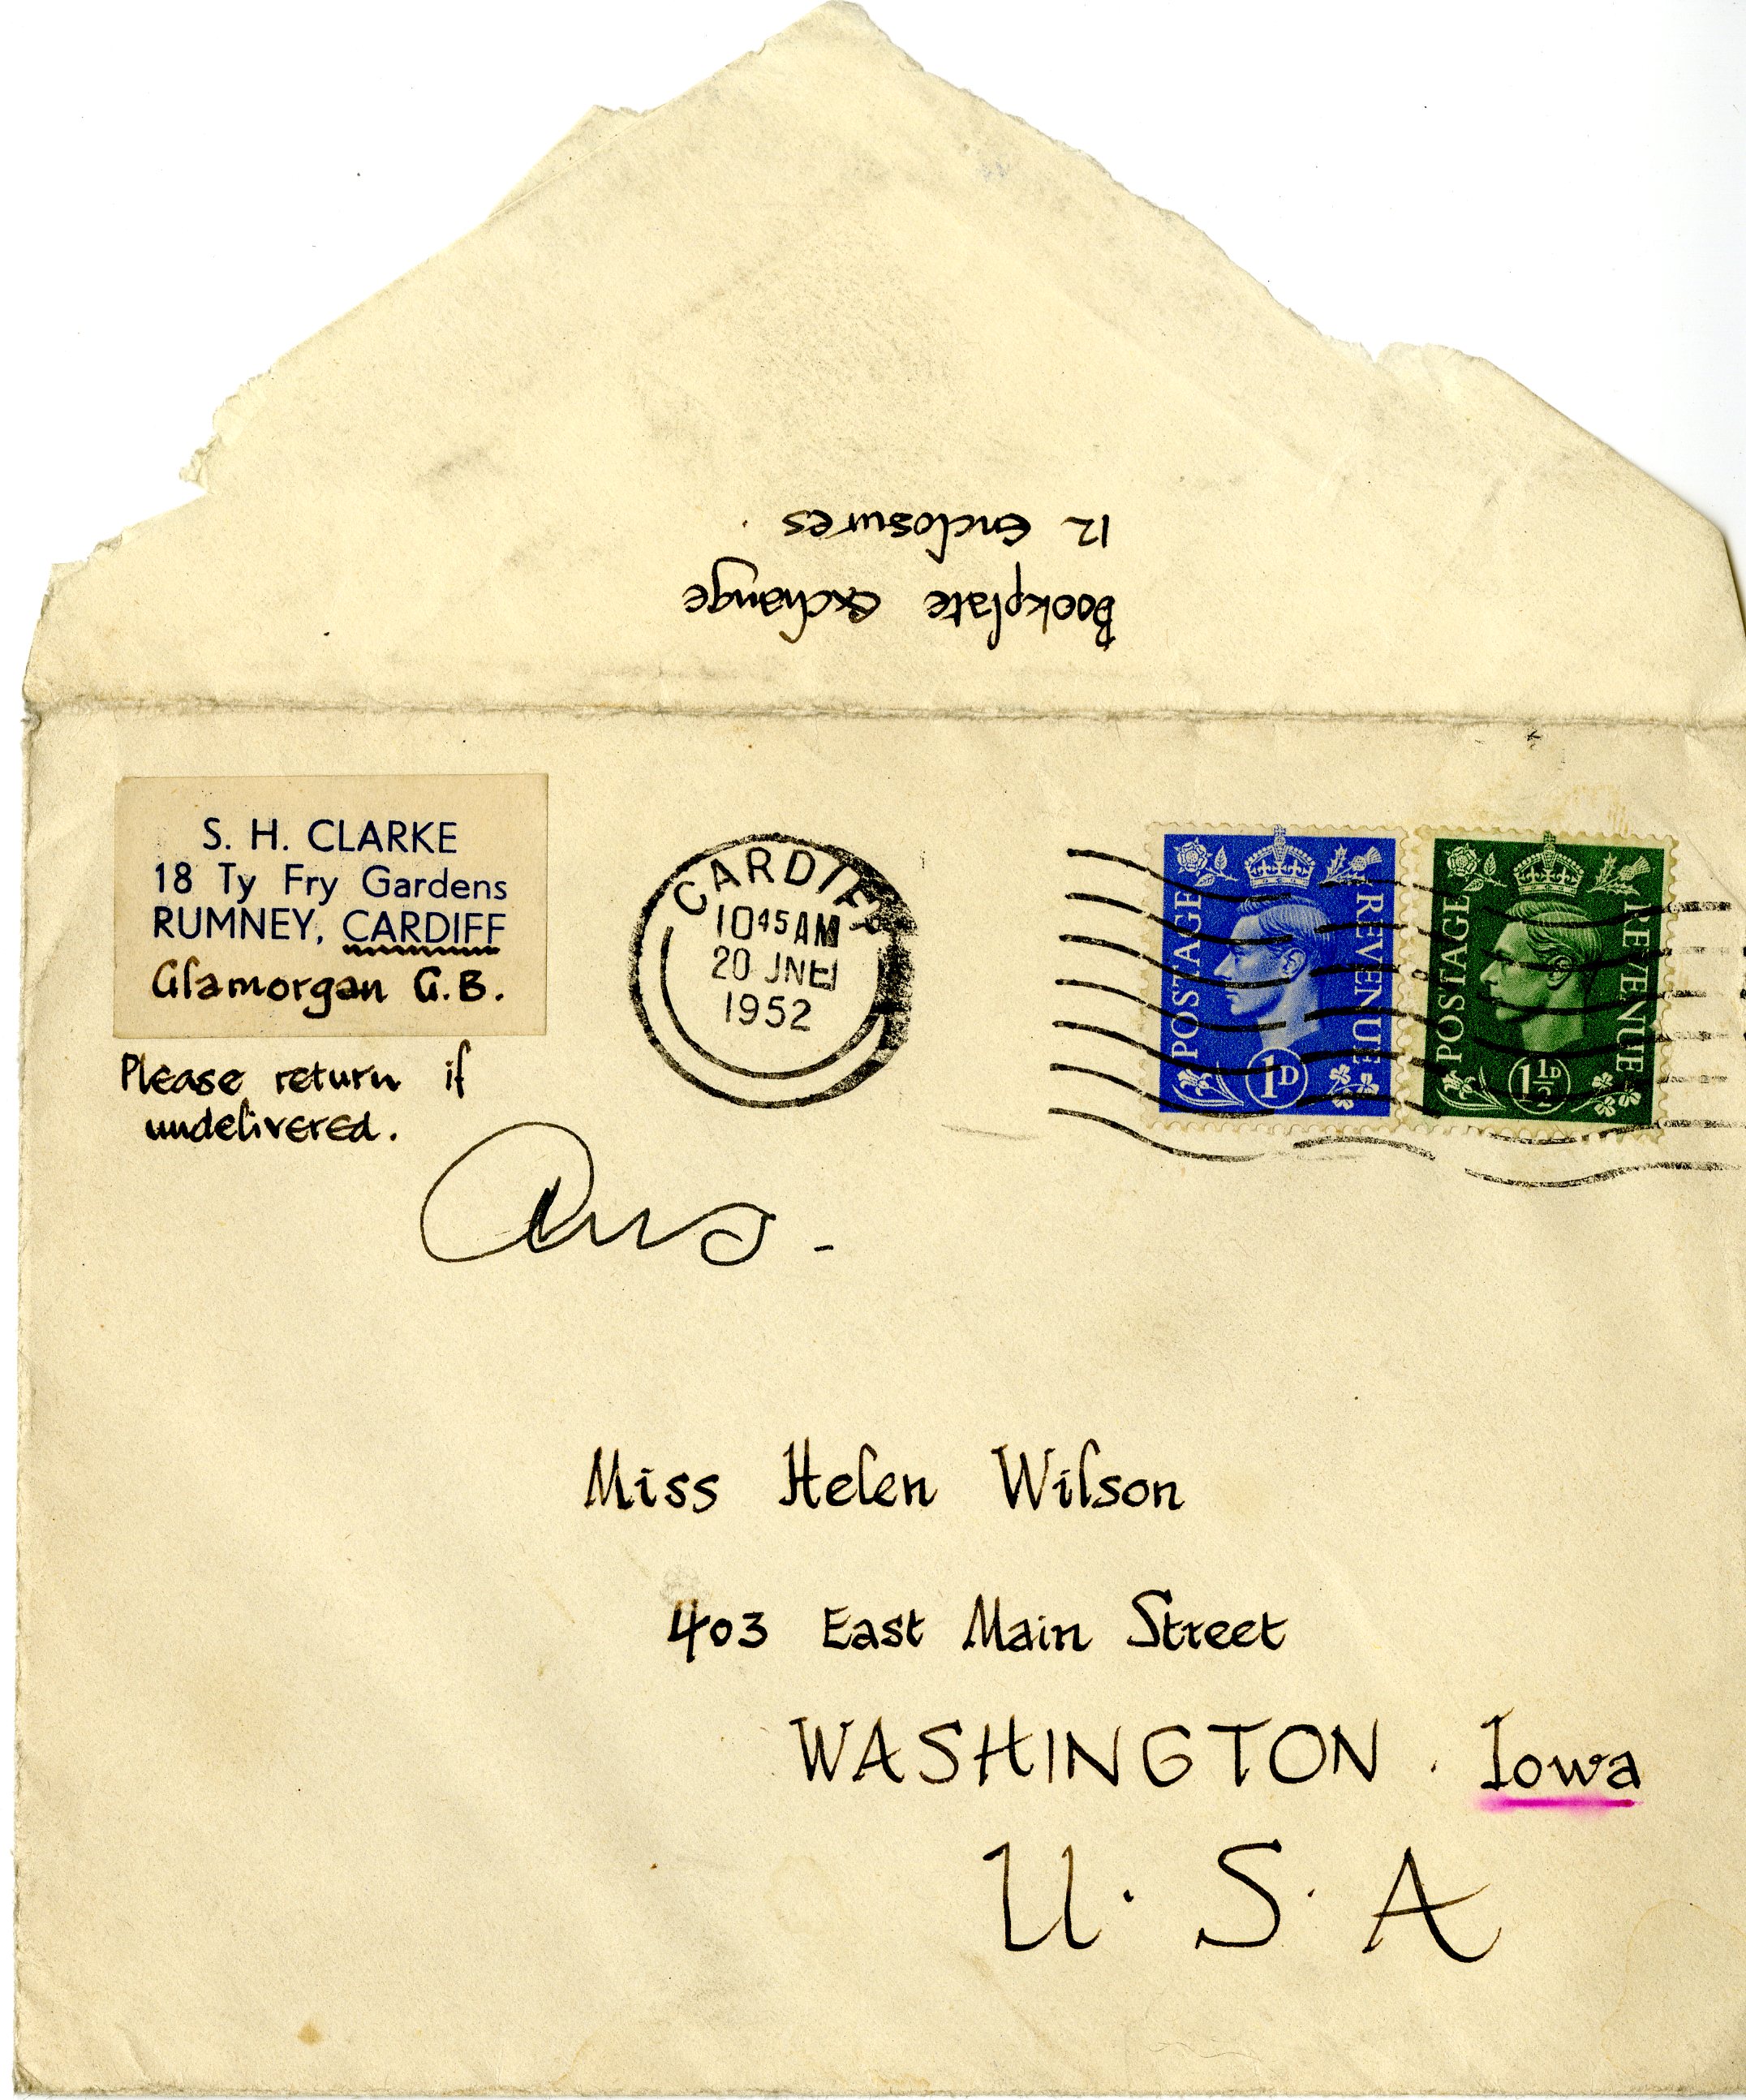 Bookplate exchange
12 Enclosures.
S. H. CLARKE
18 Ty Fry Gardens
RUMNEY, CARDIFF
Glamorgan G.B.
Please return if
undelivered.
CARDIFF
10 45 AM
20 JNE
1952
POSTAGE REVENUE
1D
POSTAGE REVENUE
1½D
Ans.
Miss Helen Wilson
403 East Main Street
WASHINGTON. Iowa
U.S.A